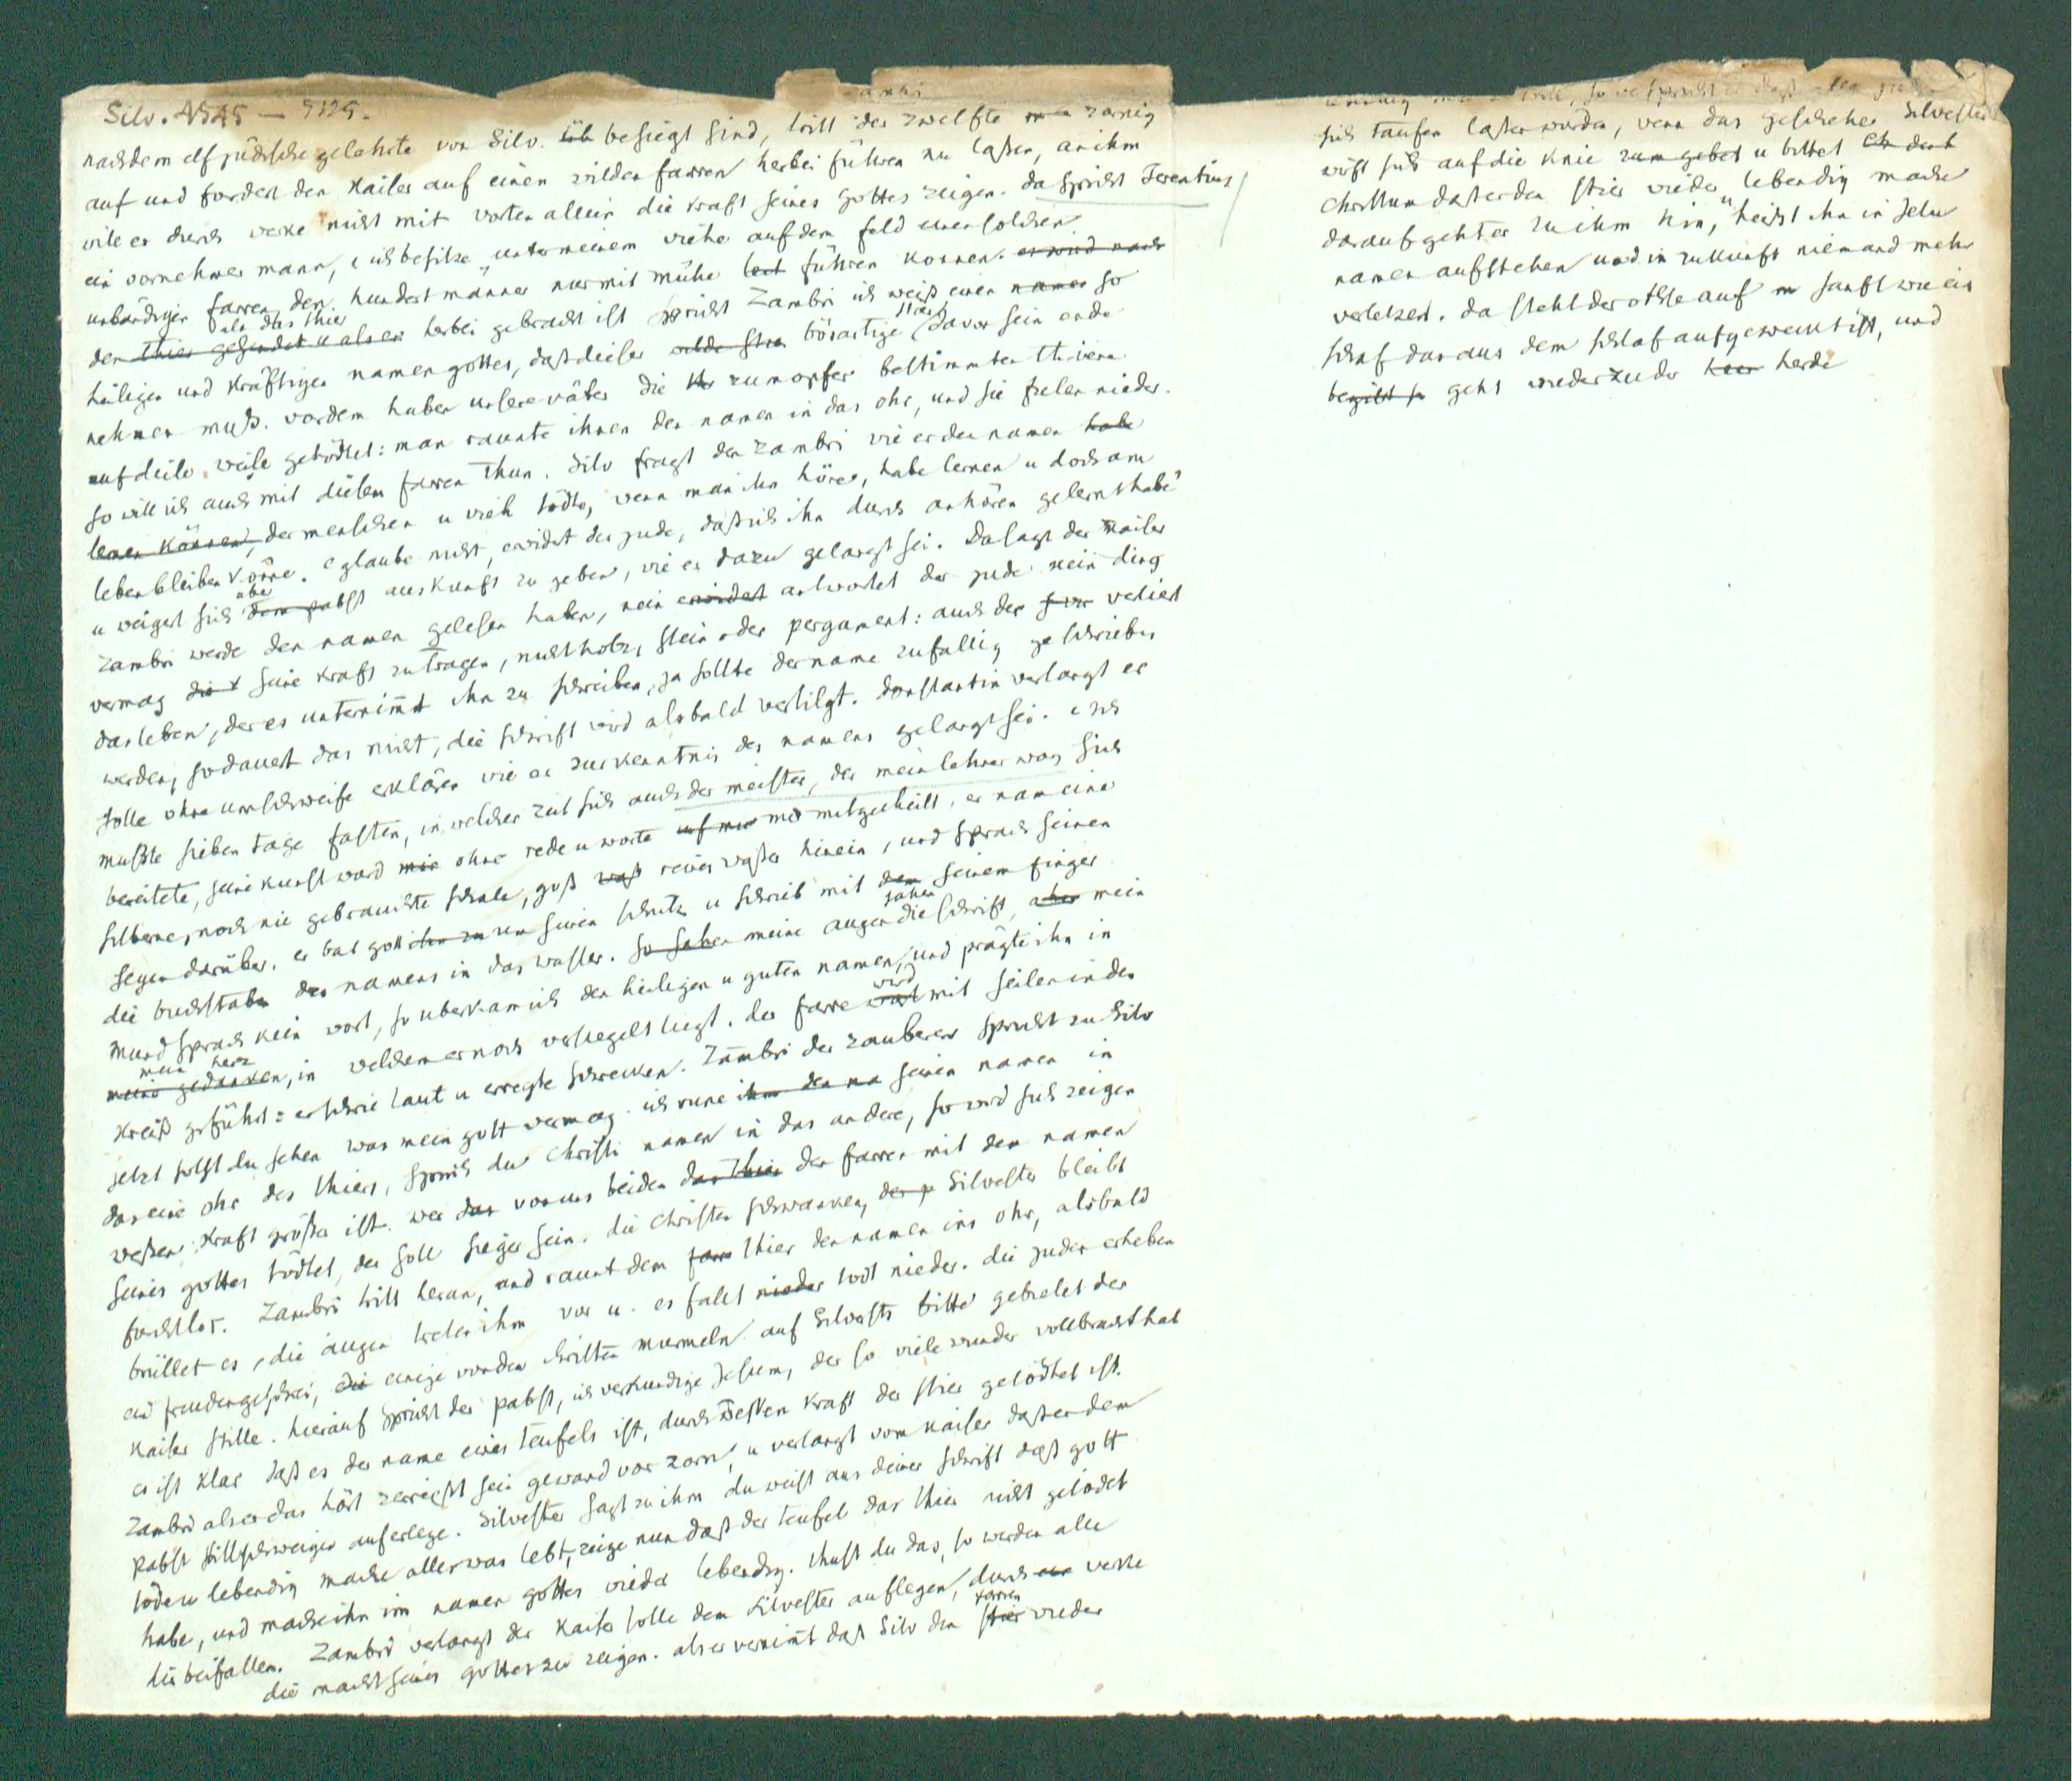 Zambri
Silv. 4545 — 5125.
nachdem elf jüdische gelehrte von Silv. besiegt sind, tritt der zwelfte zornig
auf und fordert den kaiser auf einen wilden farren herbei führen zu laßen, an ihm
wile er durch werke nicht mit worten allein die kraft seines gottes zeigen. da spricht Terentius,
ein vornehmer mann, ich besitze unter meinem viehe auf dem feld einen solchen
unbändigen farren, den hundert männer nur mit mühe fort führen konnen. er wird nach
dem thier gesendet u als er als das thier herbei gebracht ist spricht Zambri ich weiß einen namen so
heiligen und kräftigen namen gottes, daß dieser wilde stier bösartige stier davon sein ende
nehmen muß. vordem haben unsere väter die zum opfer bestimmten thiere
auf diese weise getödtet: man raunte ihnen den namen in das ohr, und sie fielen nieder.
so will ich auch mit diesem farren thun. Silv fragt den Zambri wie er den namen habe
lernen können, der menschen u vieh tödte, wenn man ihn höre, habe lernen u doch am
leben bleiben könne. glaube nicht, erwidert der jude, daß ich ihn durch anhören gelernt habe
u weigert sich dem pabst über auskunft zu geben, wie er dazu gelangt sei. Da sagt der kaiser
Zambri werde den namen gelesen haben, nein erwidert antwortet der jude kein ding
vermag die seine kraft zu tragen, nicht holz, stein oder pergament: auch der verliert
das leben, der es unternimt ihn zu schreiben, ja sollte der name zufällig geschrieben
werden, so dauert das nicht, die schrift wird alsbald vertilgt. Constantin verlangt er
solle ohne umschweife erklären wie er zur kenntnis des namens gelangt sei. ich
mußte sieben tage fasten, in welcher zeit sich auch der meister, der mein lehrer war, sich
bereitete, seine kunst ward mir ohne rede u worte mir mitgetheilt, er nam eine
silberne, noch nie gebrauchte schale, goß waß reines waßer hinein, und sprach seinen
segen darüber. er bat gott ihn zu um seinen schutz u schrieb mit dem seinem finger
die buchstaben des namens in das wasser. so sahen meine augen sahen die schrift, aber mein
mund sprach kein wort, so uberkam ich den heiligen u guten namen, und prägte ihn in
meine gedanken, mein herz in welchem er noch versiegelt liegt. der farre ward wird mit seilen in den
kreiß geführt: er schrie laut u erregte schrecken. Zambri der zauberer spricht zu Silv
jetzt solst du sehen was mein gott vermag. ich rune ihm den na seinen namen in
das eine ohr des thiers, sprich du Christi namen in das andere, so wird sich zeigen
weßen kraft größer ist. wer das von uns beiden das thier den farren mit dem namen
seines gottes tödtet, der soll sieger sein. die Christen schwanken, der p Silvester bleibt
furchtlos. Zambri tritt heran, und raunt dem farr thier den namen ins ohr, alsbald
brüllet es, die augen treten ihm vor u. es fällt nieder tod nieder. die juden erheben
ein freudengeschrei, die einige von den christen murmeln. auf Silvesters bitte gebietet der
kaiser stille. hierauf spricht der pabst, ich verkundige Jesum, der so viele wunder vollbracht hat
es ist klar daß es der name eines teufels ist, durch deßen kraft der stier getödtet ist.
Zambri als er das hört zerreißt sein gewand vor zorn, u verlangt vom kaiser daß er dem
pabst stillschweigen auferlege. Silvester sagt zu ihm du weist aus deiner schrift daß gott
töde u lebendig mache alles was lebt, zeige nun daß der teufel das thier nicht getödet
habe, und mache ihn im namen gottes wieder lebendig. thust du das, so werden alle
dir beifallen. Zambri verlangt der kaiser solle dem Silvester auflegen, durch werke
die macht seines gottes zu zeigen. als er vernimt daß Silv den stier farren wieder
so verspricht er daß alle juden
sich taufen laßen würden, wenn das geschehe. Silvester
wirft sich auf die knie zum gebet u bittet
Christum daß er den stier wieder lebendig mache
darauf geht er zu ihm hin, u heißt ihn in Jesu
namen aufstehen und in zukunft niemand mehr
verletzen. da steht der ochse auf sanft wie ein
schaf das aus dem schlaf aufgeweckt ist, und
begibt si geht wieder zu der herde